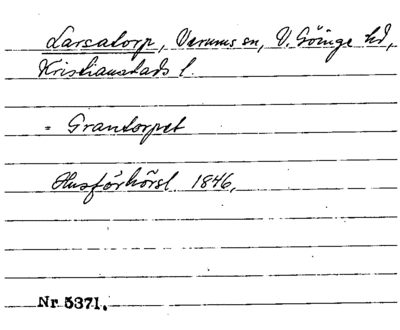 Larsatorp, Verums sn, V. Göinge hd,
Kristianstads l.
= Grantorpet
Husförhörsl. 1846,
Nr 5371.